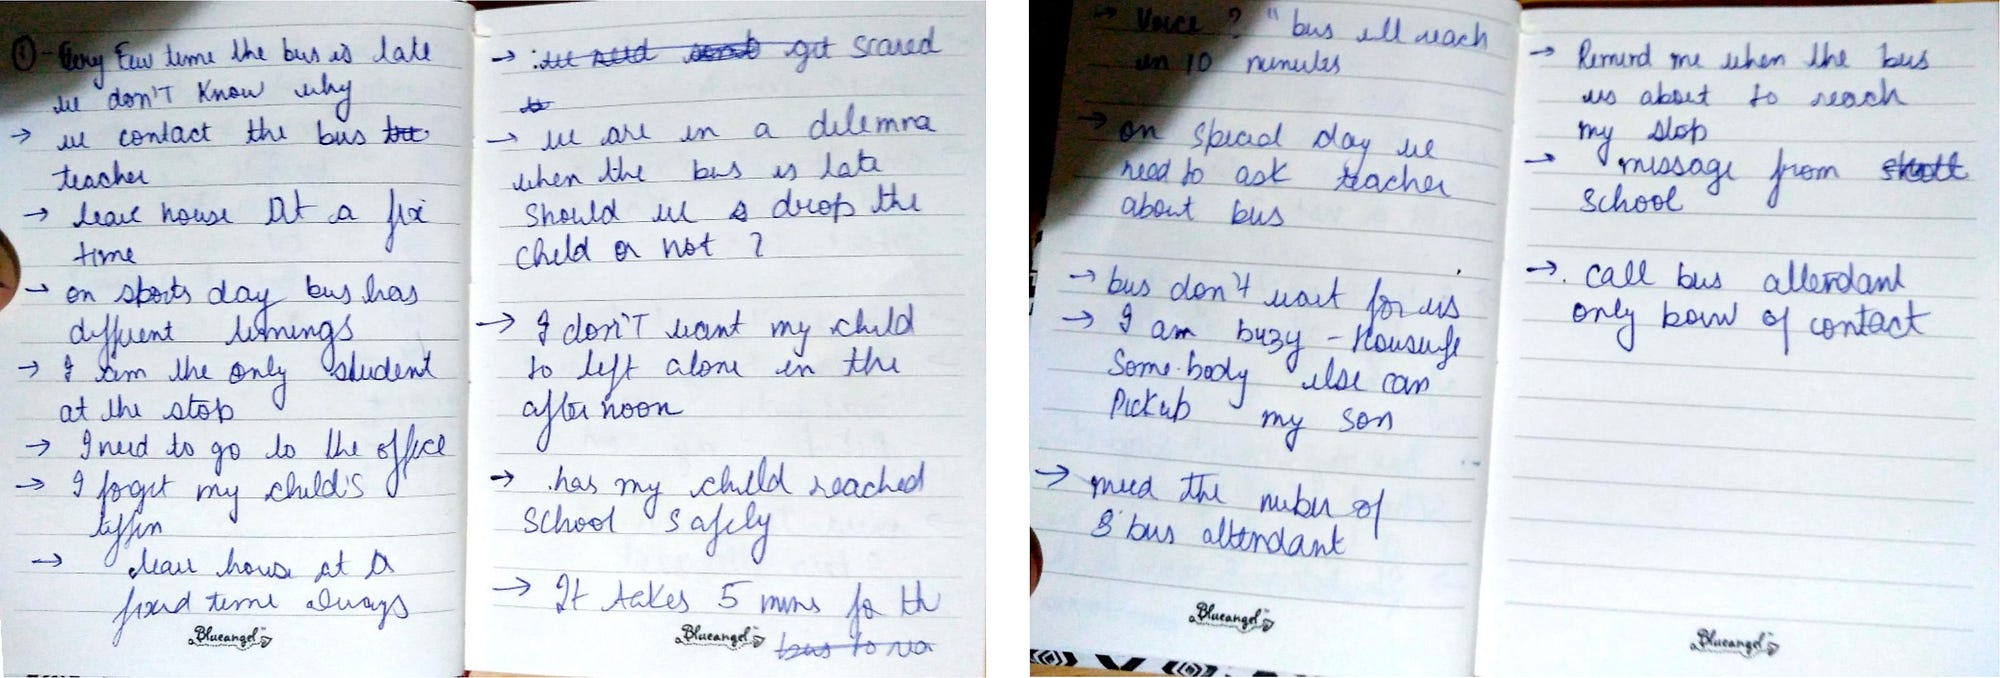 ① - Very Few time the bus is late
we don'T Know why
→ we contact the bus
teacher
→ leave house At a fix
time
→ on sports day bus has
diffuent timings
→ I am the only student
at the stop
→ I need to go to the office
→ I forget my child's
tiffin
→ leave house at a
fixed time always
Blueangel
→ we need get scared
→ we are in a dilemna
when the bus is late
should we drop the
child or not ?
→ I don'T want my child
to left alone in the
afternoon
→ has my child reached
school safely
→ It takes 5 mins for th
bus to
Blueangel
→ Voice ? " bus ill reach
in 10 minules
→ on special day we
need to ask teacher
about bus
→ bus don't wait for us
→ I am buzy - Houswife
Somebody else can
Pickup my son
→ need the nuber of
bus attendant
Blueangel
→ Remind me when the bus
is about to reach
my stop
→ message from
school
→ call bus attendant
only of contact
Blueangel